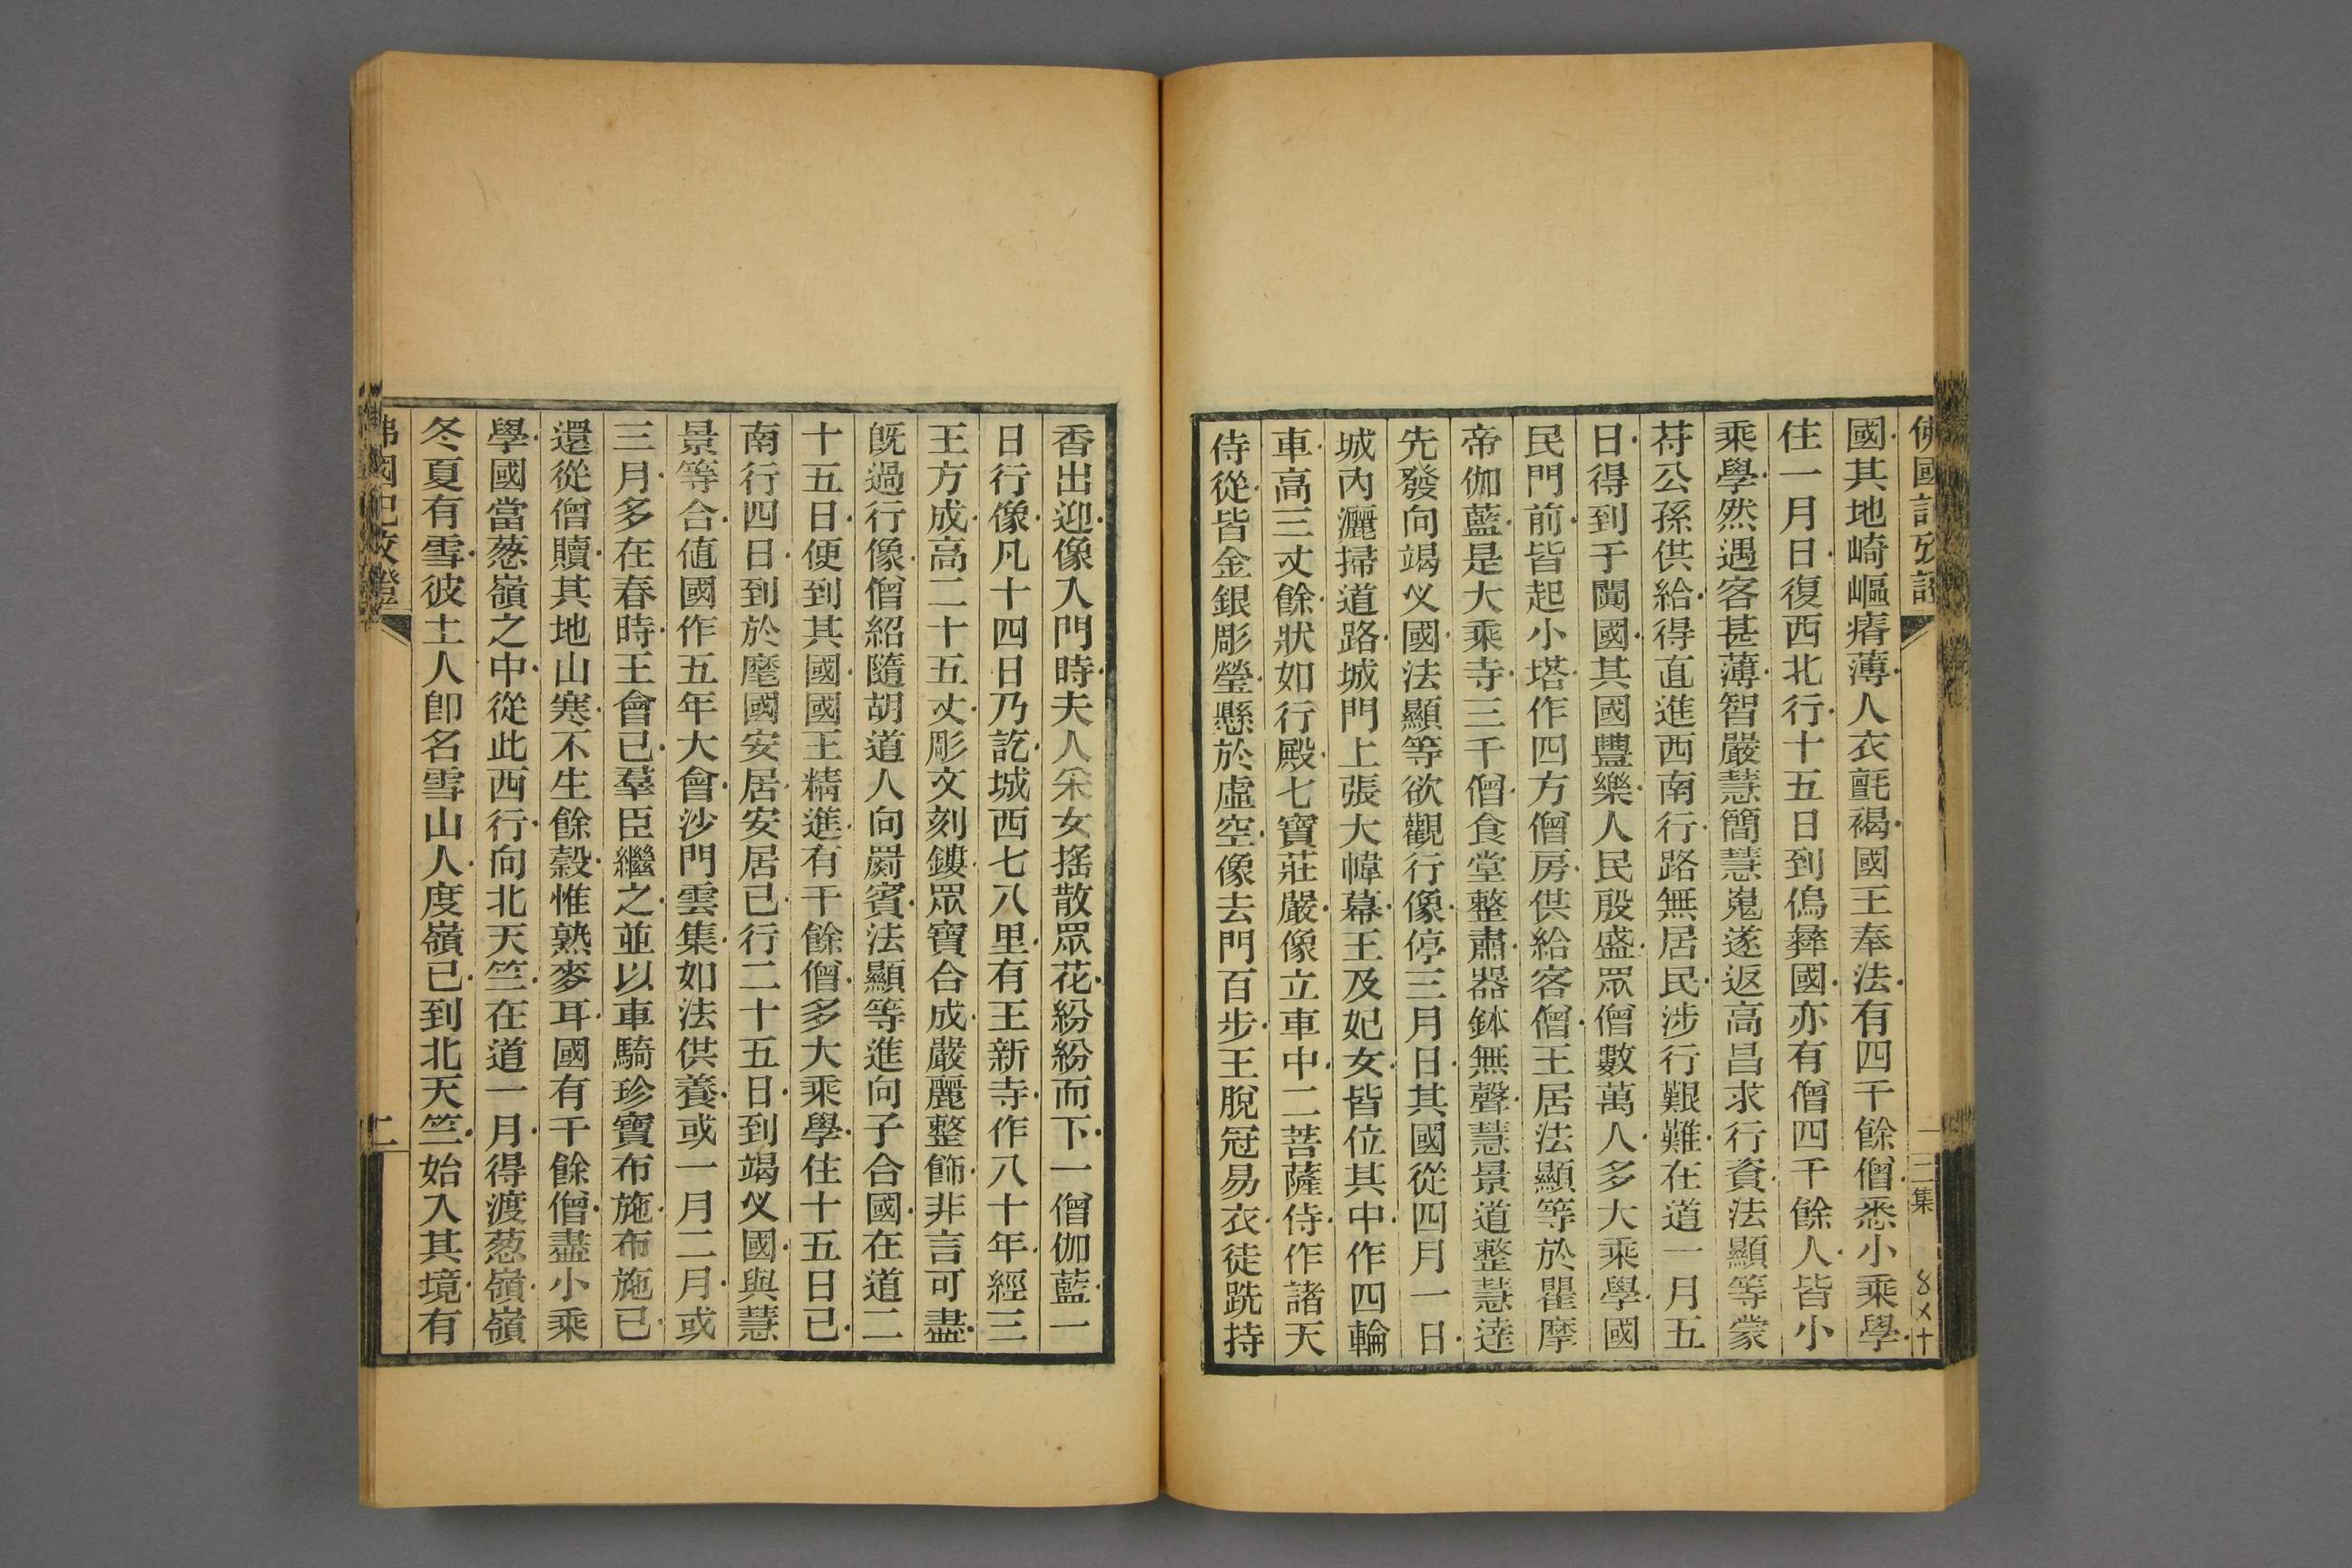 國其地崎嶇瘠薄人衣氈褐國王奉法有四千餘僧悉小乘學
住一月日復西北行十五日到僞彝國亦有僧四千餘人皆小
乘學然遇客甚薄智嚴慧簡慧嵬遂返高昌求行資法顯等蒙
苻公孫供給得直進西南行路無居民涉行艱難在道一月五
日得到于闐國其國豐樂人民殷盛眾僧數萬人多大乘學國
民門前皆起小塔作四方僧房供給客僧王居法顯等於瞿摩
帝伽藍是大乘寺三千僧食堂整肅器鉢無聲慧景道整慧達
先發向竭义國法顯等欲觀行像停三月日其國從四月一日
城內灑掃道路城門上張大幃幕王及妃女皆位其中作四輪
車高三丈餘狀如行殿七寶莊嚴像立車中二菩薩侍作諸天
侍從皆金銀彫瑩懸於虛空像去門百步王脫冠易衣徒跣持
香出迎像入門時夫人采女搖散眾花紛紛而下一僧伽藍一
日行像凡十四日乃訖城西七八里有王新寺作八十年經三
王方成高二十五丈彫文刻鏤眾寶合成嚴麗整飾非言可盡
既過行像僧紹隨胡道人向罽賓法顯等進向子合國在道二
十五日便到其國國王精進有千餘僧多大乘學住十五日已
南行四日到於麾國安居安居已行二十五日到竭义國與慧
景等合值國作五年大會沙門雲集如法供養或一月二月或
三月多在春時王會已羣臣繼之並以車騎珍寶布施布施已
還從僧贖其地山寒不生餘穀惟熟麥耳國有千餘僧盡小乘
學國當葱嶺之中從此西行向北天竺在道一月得渡葱嶺嶺
冬夏有雪彼土人卽名雪山人度嶺已到北天竺始入其境有
佛國記攷證
二